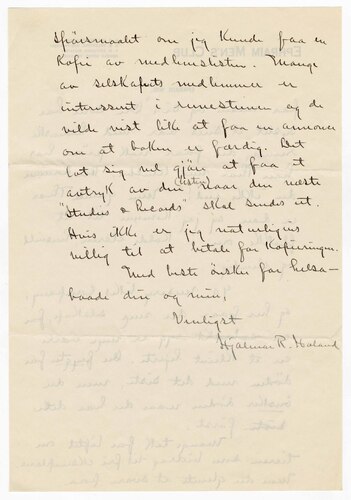 spörsmaalet om jeg kunde faa en
Kopi av medlemslisten. Mange
av selskapets medlemmer er
interessert i runestenen og de
vilde vist like at faa en annonce
om at boken er færdig. Det
lat sig vel gjöre at faa et
avtryk av den listen naar den næste
"Studies & Records" skal sendes ut.
Hvis ikke er jeg naturligvis
villig til at betale for Kopieringen.
Med beste önsker for helsa-
baade din og min,
Venligst
Hjalmar R. Holand